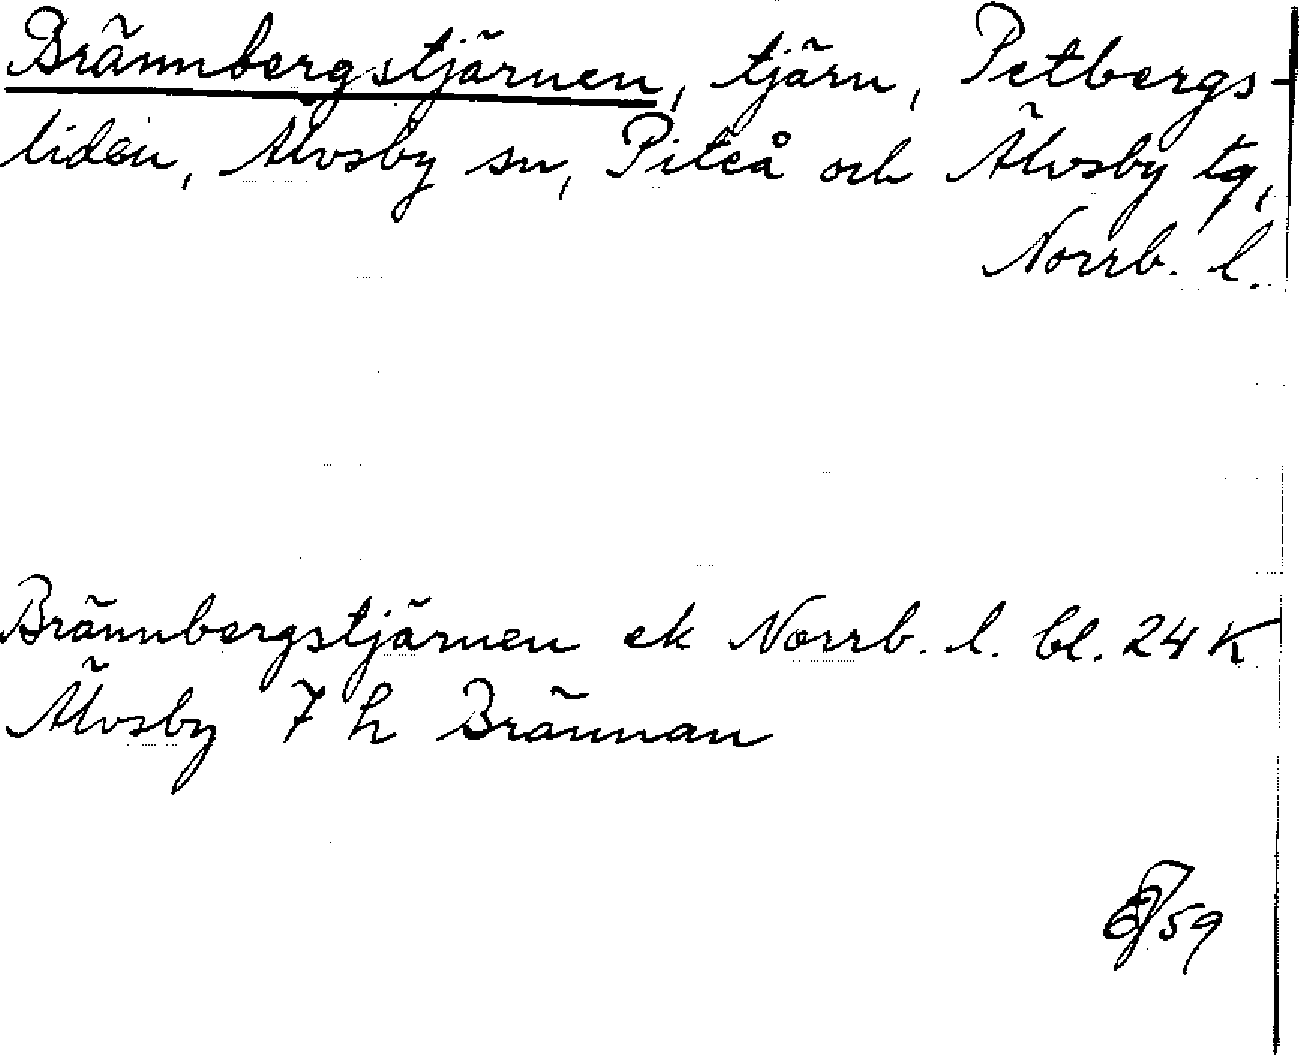 Brännbergstjärnen, tjärn, Petbergs-
liden, Älvsby sn, Piteå och Älvsby tg,
Norrb. l.
Brännbergstjärnen ek Norrb. l. bl. 24 K
Älvsby 7 h Brännan
59